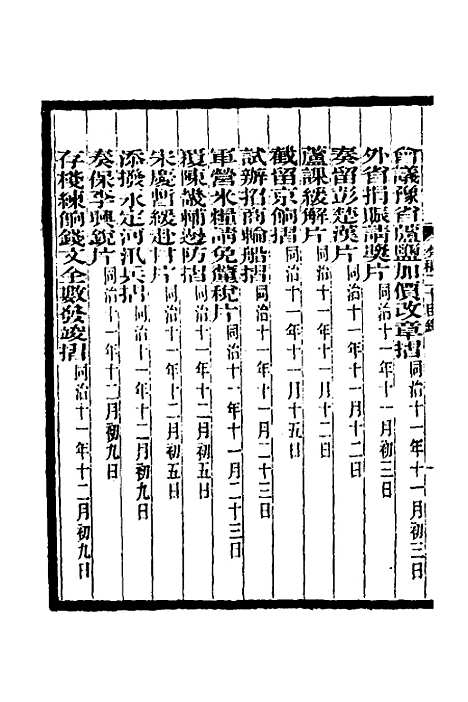 會議豫省蘆鹽加價改章摺 同治十一年十一月初三日
外省捐賑請獎片 同治十一年十一月初三日
奏留彭楚漢片 同治十一年十一月十二日
蘆課緩解片 同治十一年十一月十二日
截留京餉摺 同治十一年十一月十五日
試辦招商輪船摺 同治十一年十一月二十三日
軍營米糧請免釐稅片 同治十一年十一月二十三日
復陳畿輔邊防摺 同治十一年十二月初五日
宋慶酌緩赴甘片 同治十一年十二月初五日
添撥永定河汛兵摺 同治十一年十二月初九日
奏保李興銳片 同治十一年十二月初九日
存棧練餉錢文全數發竣摺 同治十一年十二月初九日